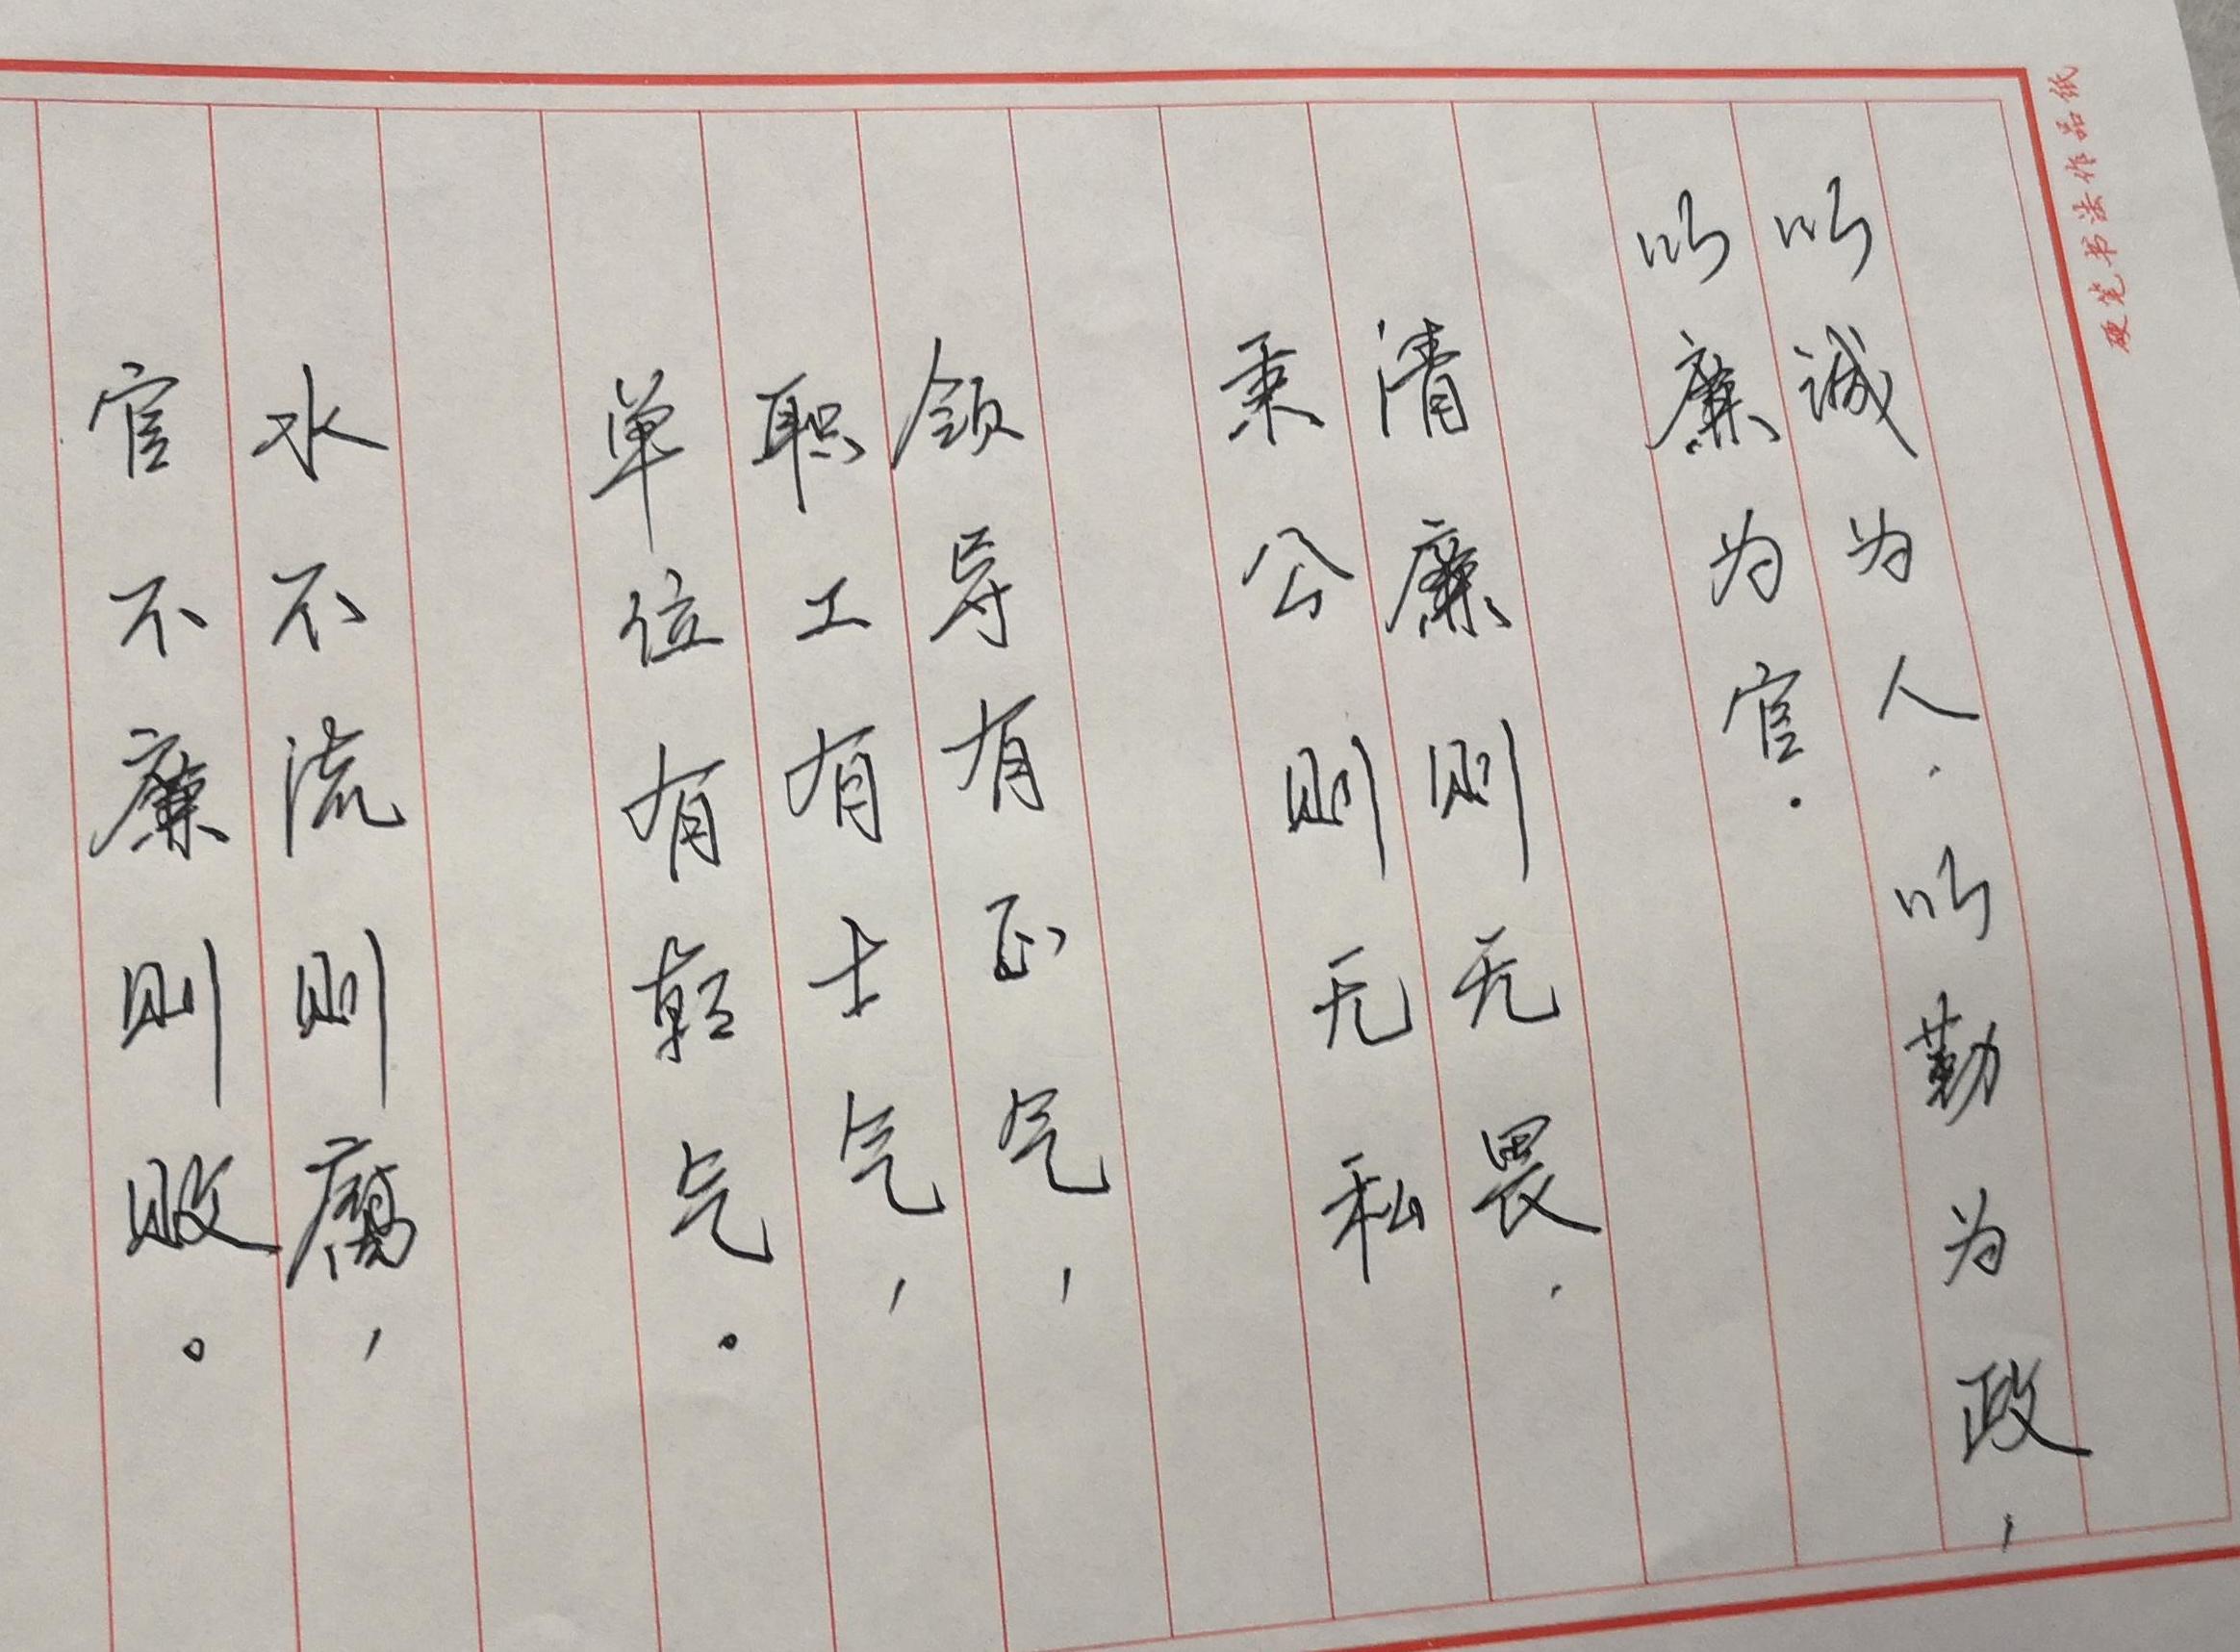 硬笔书法作品纸
以诚为人.以勤为政,
以廉为官.
清廉则无畏.
秉公则无私
领导有正气,
职工有士气,
单位有朝气.
水不流则腐,
官不廉则败。